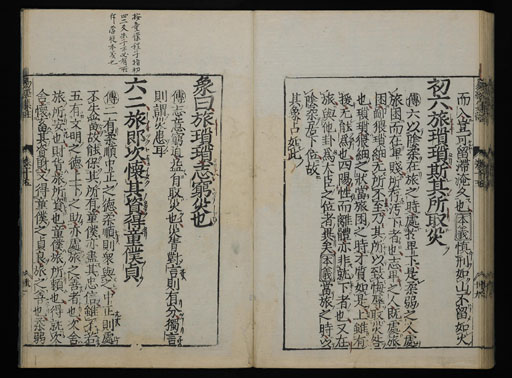 而入豈可留滯淹久也本義慎刑如山不留如火
初六旅瑣瑣斯其所取災
傳六以陰柔在旅之時處於卑下是柔弱之人處
旅困而在卑賤所存污下者也志卑之人既處旅
困鄙猥瑣細无所不至乃其所以致悔辱取災咎
也瑣瑣猥細之狀當旅困之時才質如是上雖有
援无能為也四陽性而離體亦非就下者也又在
旅與他卦為大臣之位者異矣本義當旅之時以
陰柔居下位故
其象占如此
象曰旅瑣瑣志窮災也
傳志意窮迫益自取災也災眚對言則有分獨言
則謂災患耳
六二旅即次懷其資得童僕貞
傳二有柔順中正之德柔順則衆與之中正則處
不失當故能保其所有童僕亦盡其忠信雖不若
五有文明之德上下之助亦處旅之善者也次舍
旅所安也財貨旅所資也童僕旅所賴也得就次
舍懷畜其資財又得童僕之貞良旅之善也柔弱